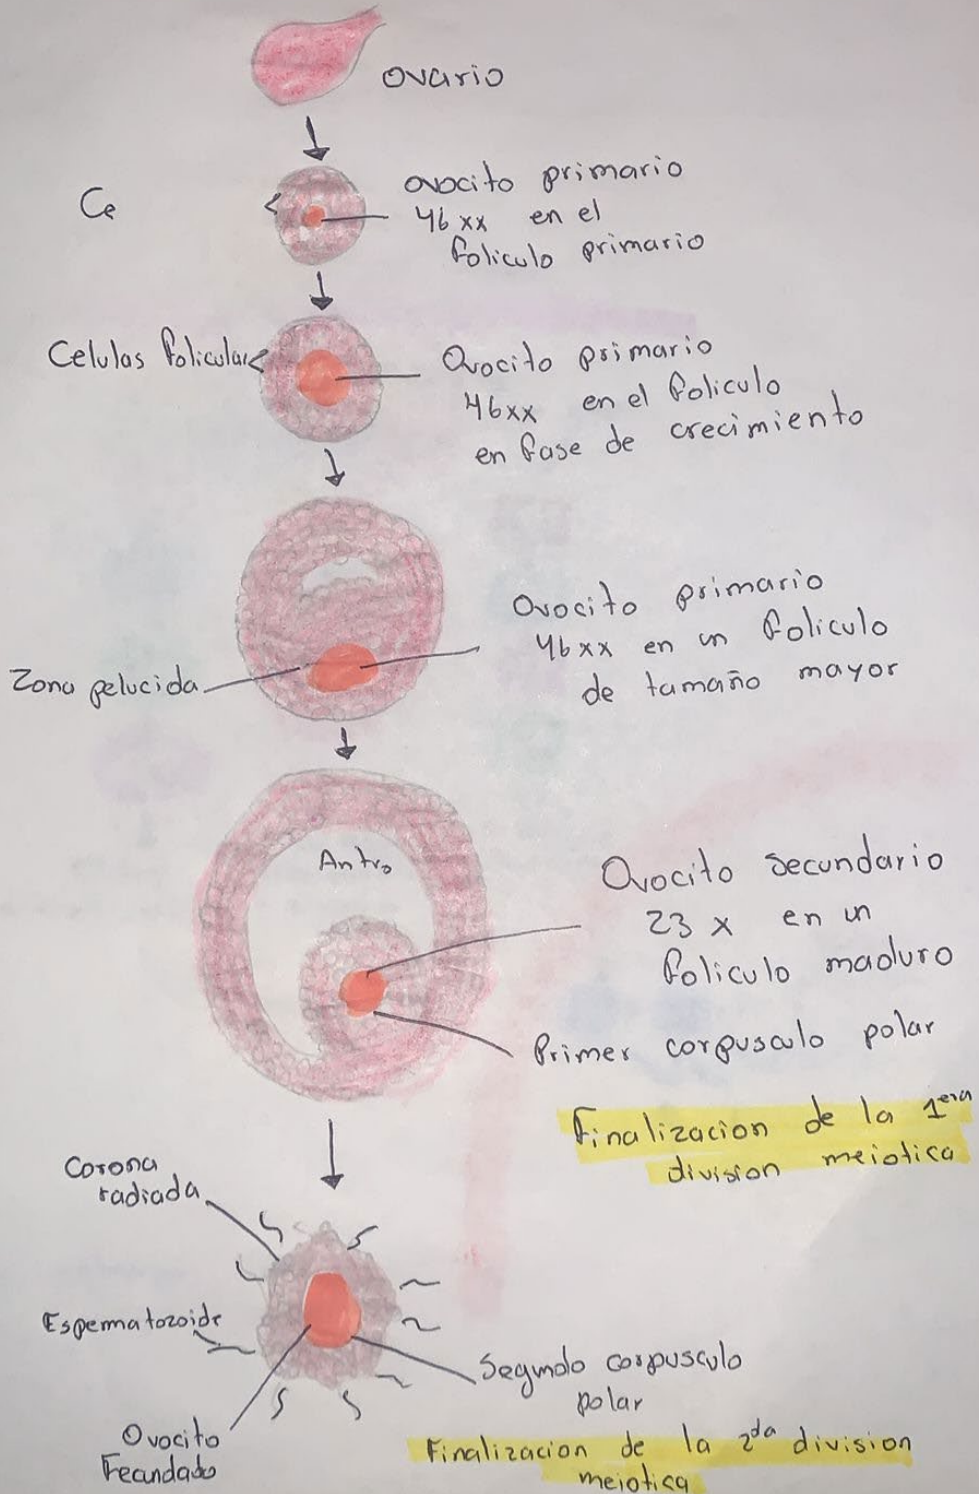 Ovario
Ce
Ovocito primario
46 xx en el
foliculo primario
Celulas folicular
Ovocito primario
46xx en el foliculo
en fase de crecimiento
Ovocito primario
46 xx en un foliculo
de tamaño mayor
Zona pelucida
Antro
Ovocito Secundario
23 x en un
foliculo maduro
Primer corpusculo polar
Finalizacion de la 1era
division meiotica
Corona
radiada
Espermatozoide
Segundo corpusculo
polar
Ovocito
Fecundado
Finalizacion de la 2da division
meiotica